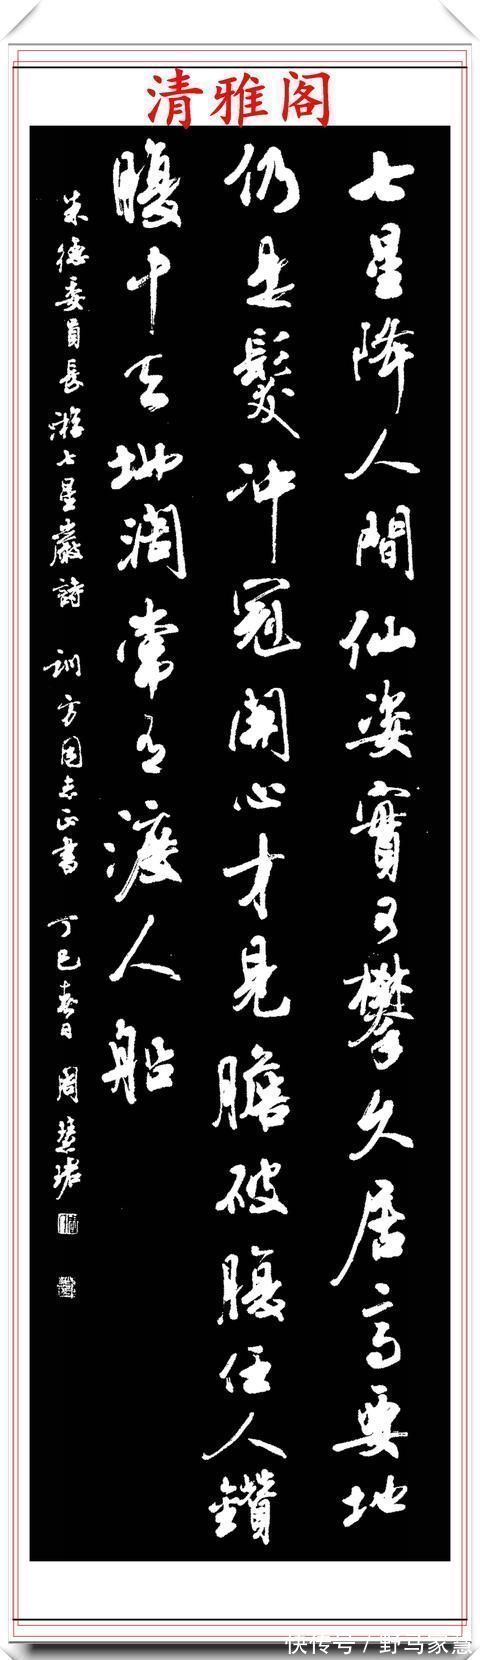 清雅阁
七星降人間仙姿實可攀久居高要地
仍是髮冲冠開心才見膽破腹任人鑽
腹中天地闊常有渡人船
朱德委員長游七星巖詩 訓方同志正書 丁巳春日 周慧珺
快传号 / 野马家慧